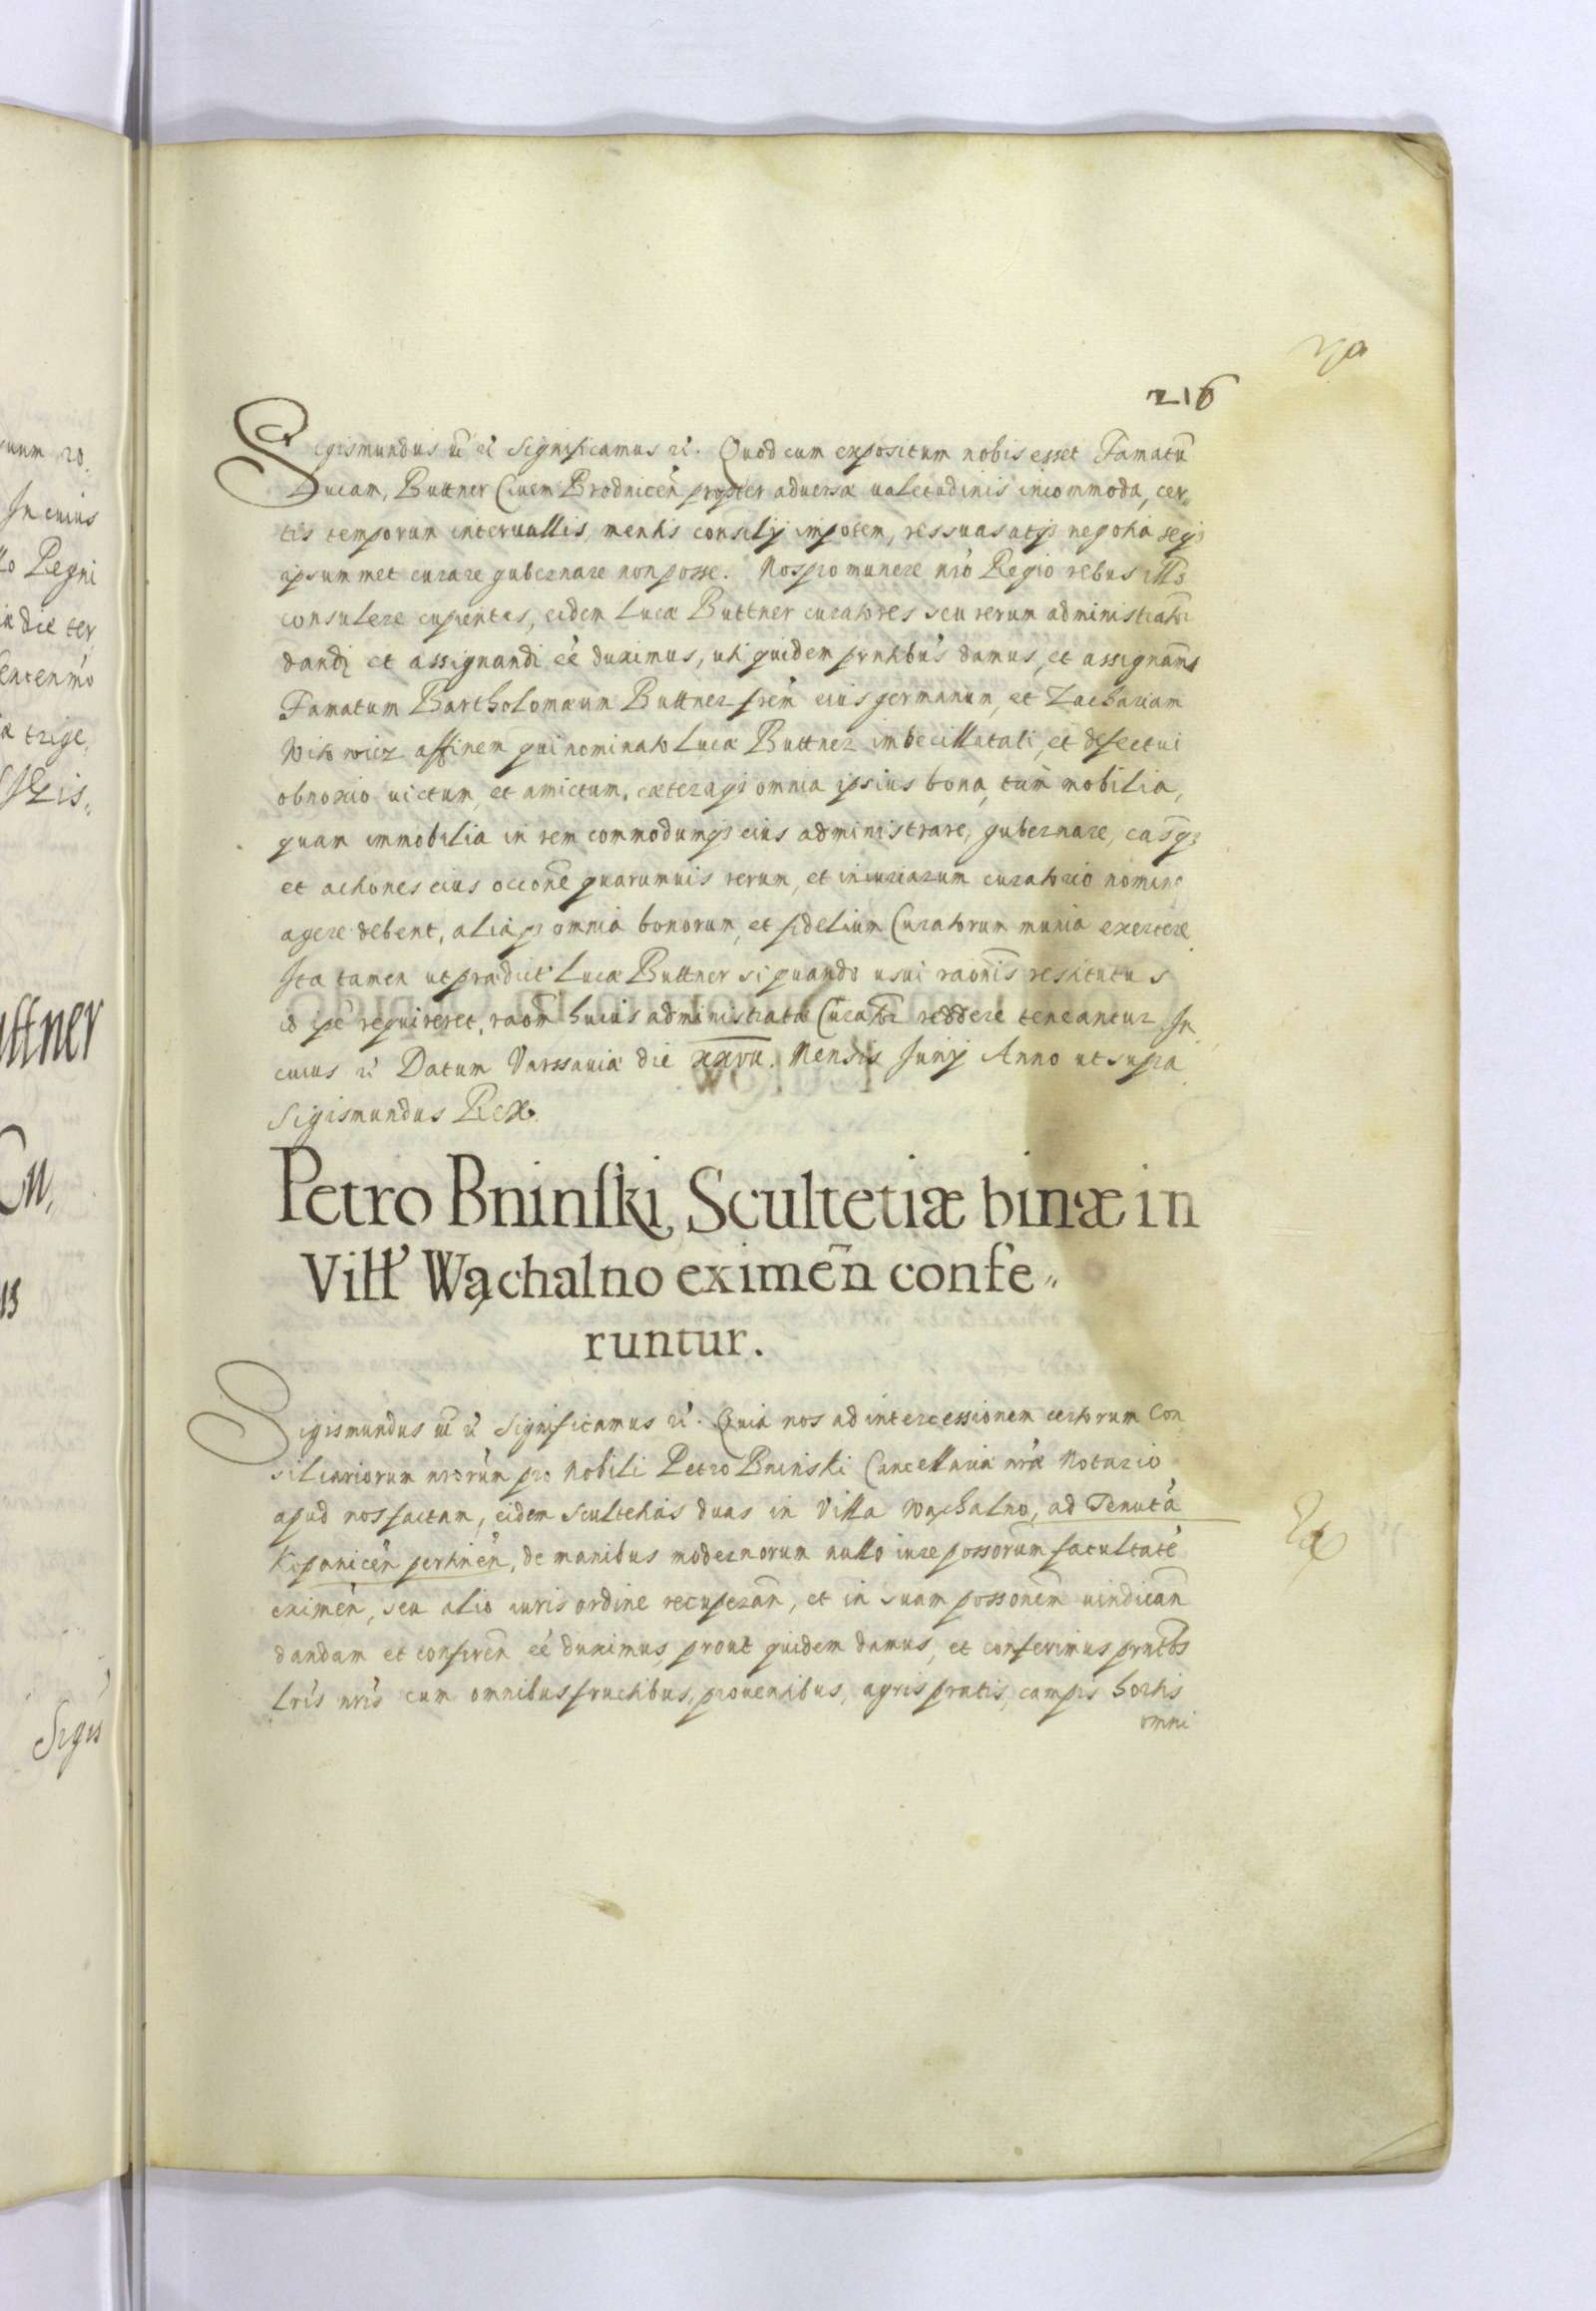 216
Sigismundus etc Significamus etc. Quod cum expositum nobis esset Famatū
Lucam, Buttner Ciuem Brodnicēn propter aduersæ ualetudinis incommoda, cer„
tis temporum interuallis, mentis consilij impotem, res suas atq3 negotia seq3
ipsummet curare gubernare non posse. Nos pro munere nr̃o Regio rebus
consulere cupientes, eidem Lucæ Buttner curatores seu rerum administrator
dandi et assignandi eē duximus, uti quidem pntibus damus, et assignams
Famatum Bartholomæum Buttner frēm eius germanum, et Zachariam
Witowicz affinem qui nominato Lucæ Buttner imbecillitati, et defectui
obnoxio uictum, et amictum, cæteraq3 omnia ipsius bona, tum mobilia,
quam immobilia in rem commodumq3 eius administrare, gubernare, casq3
et actiones eius occone quarumuis rerum, et iniuriarum curatorio nomine
agere debent, aliaq3 omnia bonorum, et fidelium Curatorum munia exercere
Ita tamen ut prædict Lucæ Buttner si quando usui raonis restitutus
id ipe requireret, raom huius administratæ Curator reddere teneantur. In
cuius etc Datum Varssauiæ die xxvii. Mensis Junij Anno ut supra
Sigismundus Rex.
Petro Bninski, Scultetiæ binæ in
Vill' Wąchalno eximēn confe„
runtur.
Sigismundus etc Significamus etc. Quia nos ad intercessionem certorum Con
siliariorum nrorum pro Nobili Petro Bninski Cancellariæ nræ Notario
apud nos factam, eidem scultetias duas in Villa Wąchalno, ad Tenutā
Kopanicēn pertinēn, de manibus modernorum nullo iure possorum facultatē
eximēn, seu alio iuris ordine recuperān, et in suam possonem uindicān
dandam et conferēn eē duximus, prout quidem damus, et conferimus prntbs
Lris nris cum omnibus fructibus, prouentibus, agris pratis, campis hortis
omni
uttner
Sigis